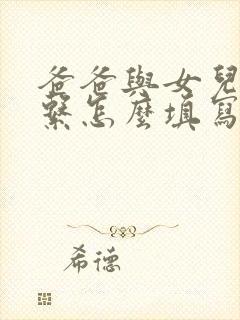 爸爸與女兒
繫怎麼填寫
希德